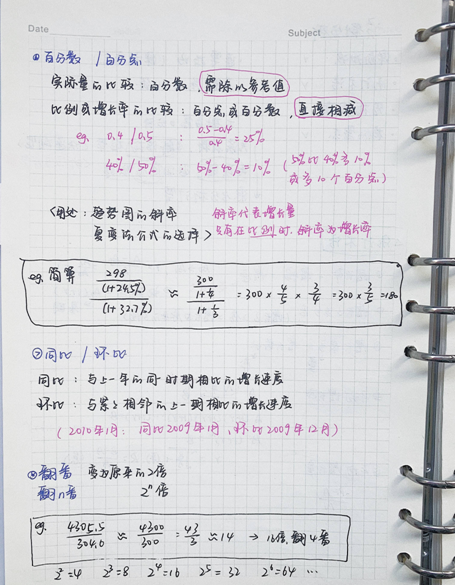 Date
Subject
①百分数 / 百分点
实际量的比较：百分数，需除以参考值
比例或增长率的比较：百分点或百分数，直接相减
eg. 0.4 / 0.5 ： (0.5-0.4)/0.4 = 25%
40% / 50% ： 50% - 40% = 10% (50%比40%多10%
或多10个百分点)
趋势图的斜率 斜率代表增长量
时，斜率为增长率
eg. 简算 298/(1+24.5%)/(1+32.7%) ≈ 300/(1+1/4)/(1+1/3) = 300 × 4/5 × 3/4 = 300 × 3/5 = 180
②同比 / 环比
同比：与上一年的同一时期相比的增长速度
环比：与紧紧相邻的上一期相比的增长速度
(2010年1月：同比2009年1月，环比2009年12月)
③翻番 变为原来的2倍
翻n番 2ⁿ倍
eg. 4305.5/304.0 ≈ 4300/300 = 43/3 ≈ 14 → 16倍，翻4番
2²=4 2³=8 2⁴=16 2⁵=32 2⁶=64 …